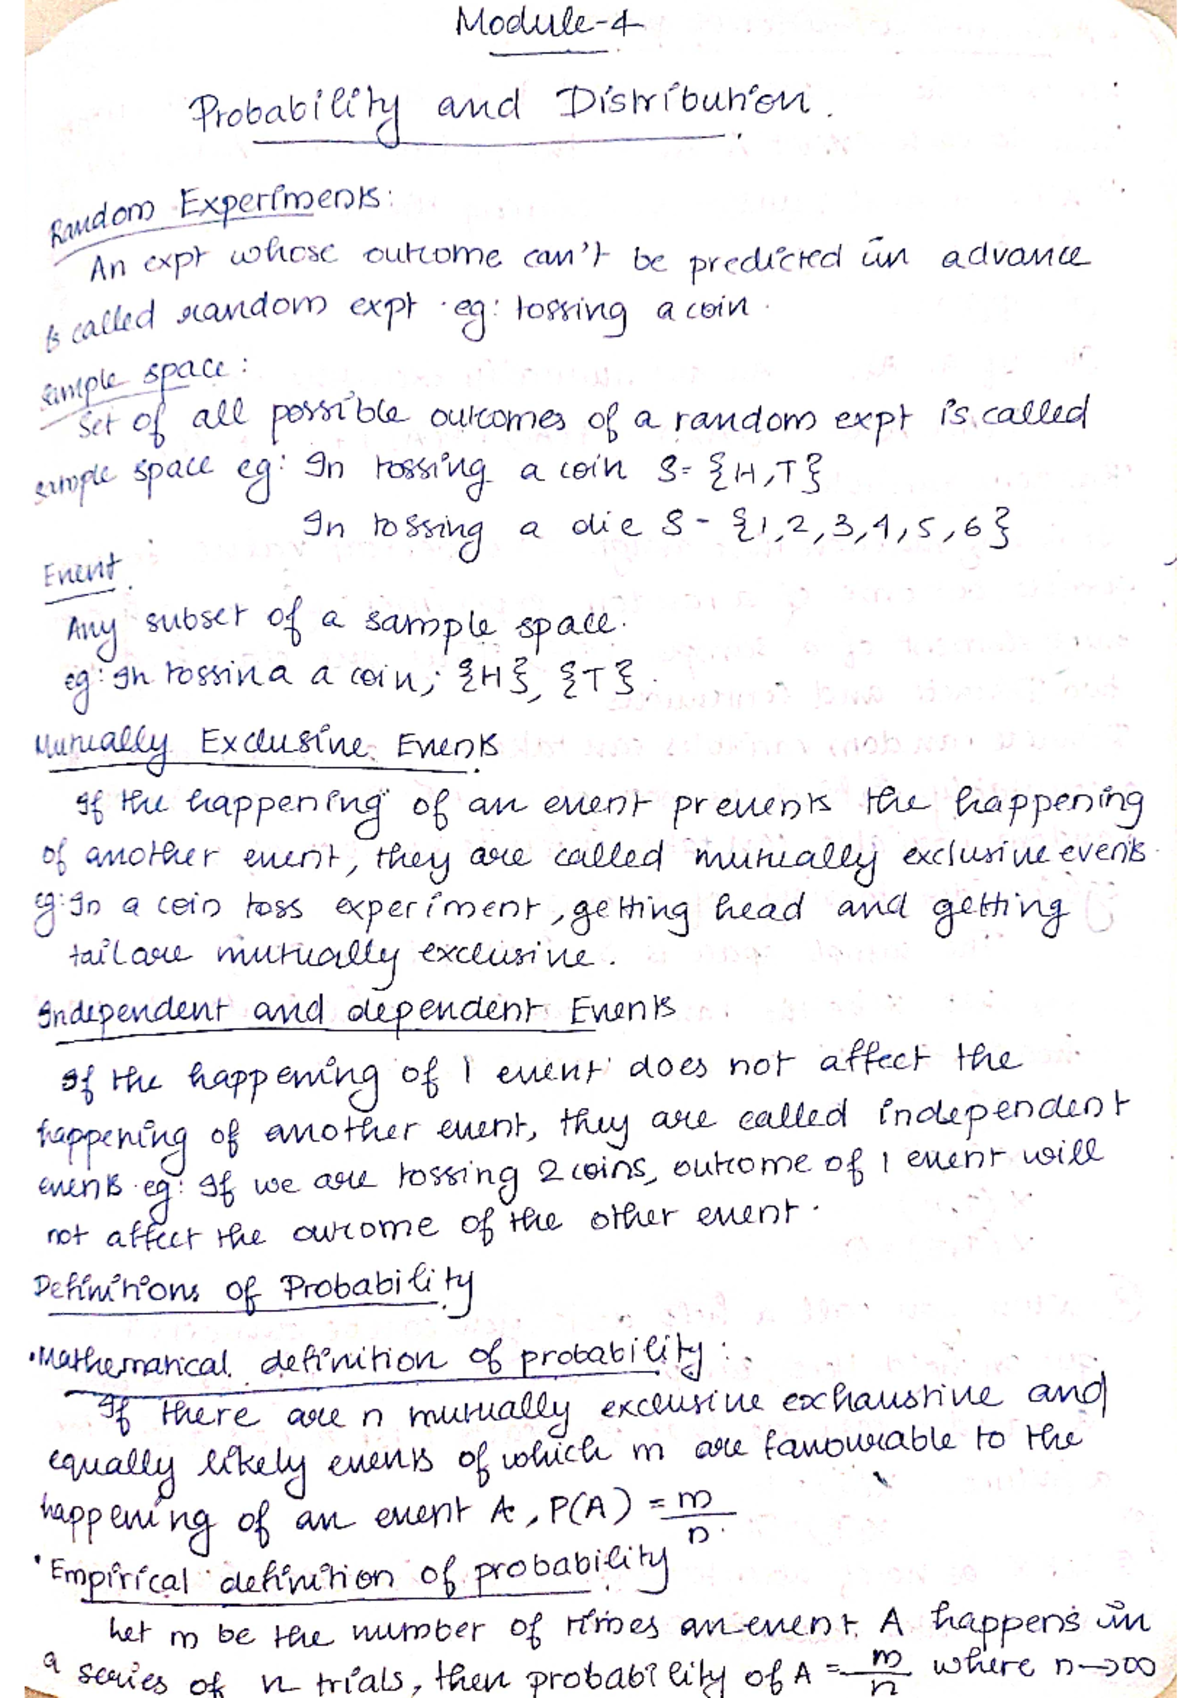 Module-4
Probability and Distribution.
Random Experiments:
An expt whose outcome can't be predicted in advance
is called random expt. eg: tossing a coin.
Sample space:
Set of all possible outcomes of a random expt is called
sample space eg: In tossing a coin S= {H,T}
In tossing a die S- {1,2,3,4,5,6}
Event
Any subset of a sample space.
eg: In tossing a coin; {H}, {T}.
Mutually Exclusive Events
If the happening of an event prevents the happening
of another event, they are called mutually exclusive events.
eg: In a coin toss experiment, getting head and getting
tail are mutually exclusive.
Independent and dependent Events
If the happening of 1 event does not affect the
happening of another event, they are called independent
events. eg: If we are tossing 2 coins, outcome of 1 event will
not affect the outcome of the other event.
Definitions of Probability
•Mathematical definition of probability:
If there are n mutually exclusive exhaustive and
equally likely events of which m are favourable to the
happening of an event A, P(A) = m/n.
•Empirical definition of probability
Let m be the number of times an event A happens in
a series of n trials, then probability of A = m/n where n→∞